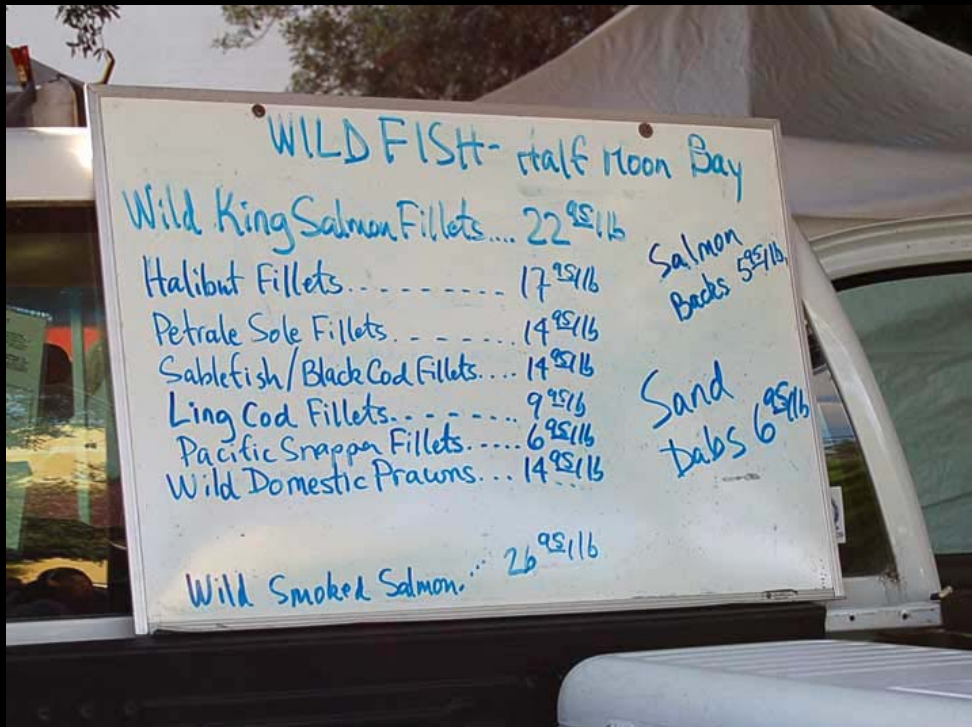 WILD FISH- Half Moon Bay
Wild King Salmon Fillets.... 22 95/lb
Halibut Fillets.......... 17 95/lb
Petrale Sole Fillets....... 14 95/lb
Sablefish/Black Cod Fillets.... 14 95/lb
Ling Cod Fillets........ 9 95/lb
Pacific Snapper Fillets..... 6 95/lb
Wild Domestic Prawns... 14 95/lb
Wild Smoked Salmon.... 26 95/lb
Salmon
Backs 5 95/lb.
Sand
Dabs 6 95/lb